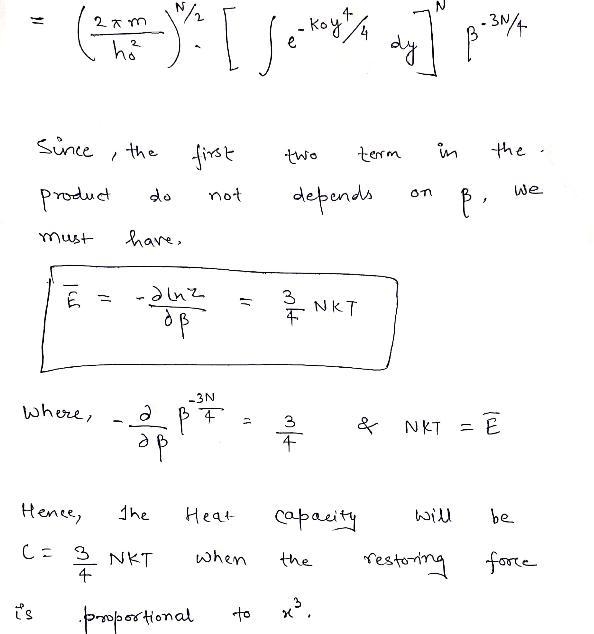 = (2πm / h₀²)^N/2 . [ ∫ e^-K₀y⁴/4 dy ]^N β^-3N/4
Since, the first two term in the .
product do not depends on β, we
must have.
Ē = -∂lnz/∂β = 3/4 NKT
Where, -∂/∂β β^-3N/4 = 3/4 & NKT = Ē
Hence, The Heat capacity will be
C = 3/4 NKT when the restoring force
is proportional to x³.